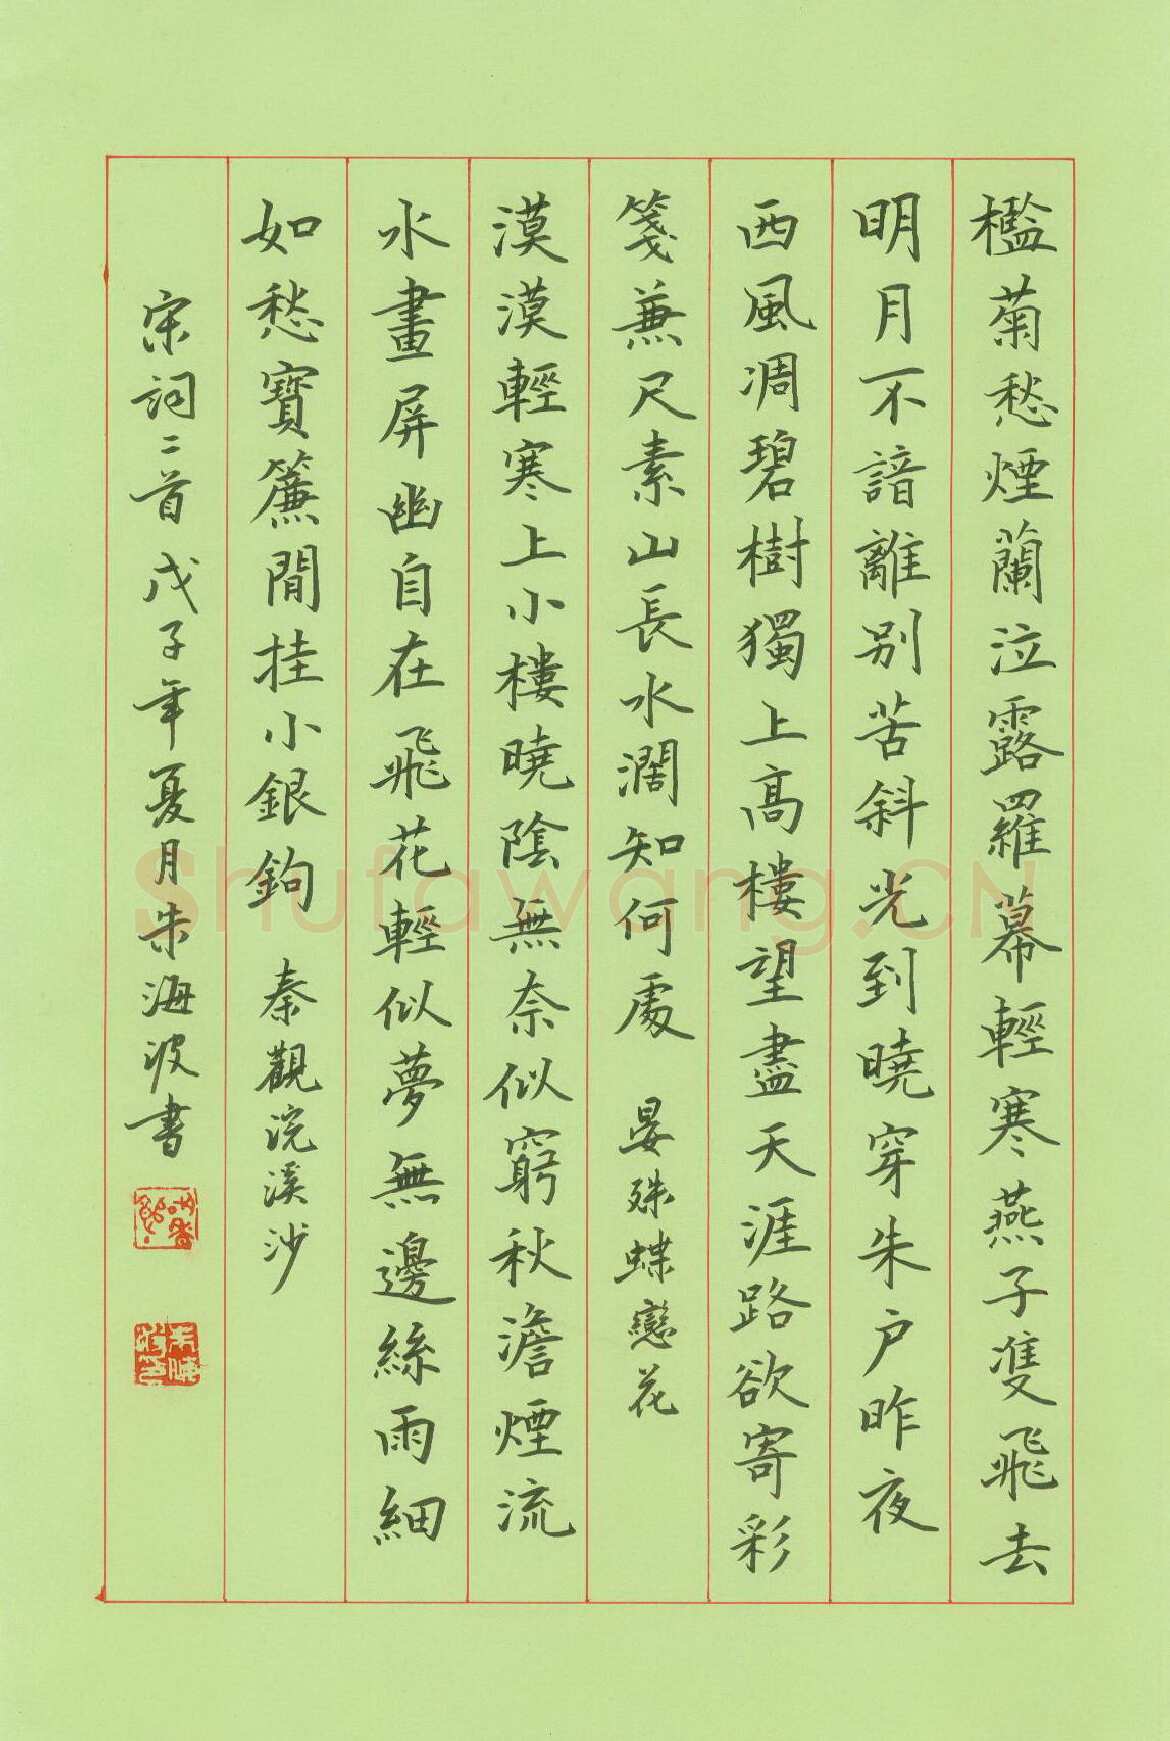 檻菊愁煙蘭泣露羅幕輕寒燕子雙飛去
明月不諳離别苦斜光到曉穿朱户昨夜
西風凋碧樹獨上高樓望盡天涯路欲寄彩
箋兼尺素山長水濶知何處 晏殊蝶戀花
漠漠輕寒上小樓曉陰無奈似窮秋澹煙流
水畫屏幽自在飛花輕似夢無邊絲雨細
如愁寶簾閒挂小銀鉤 秦觀浣溪沙
宋詞二首戊子年夏月朱海波書
Shufawang.CN